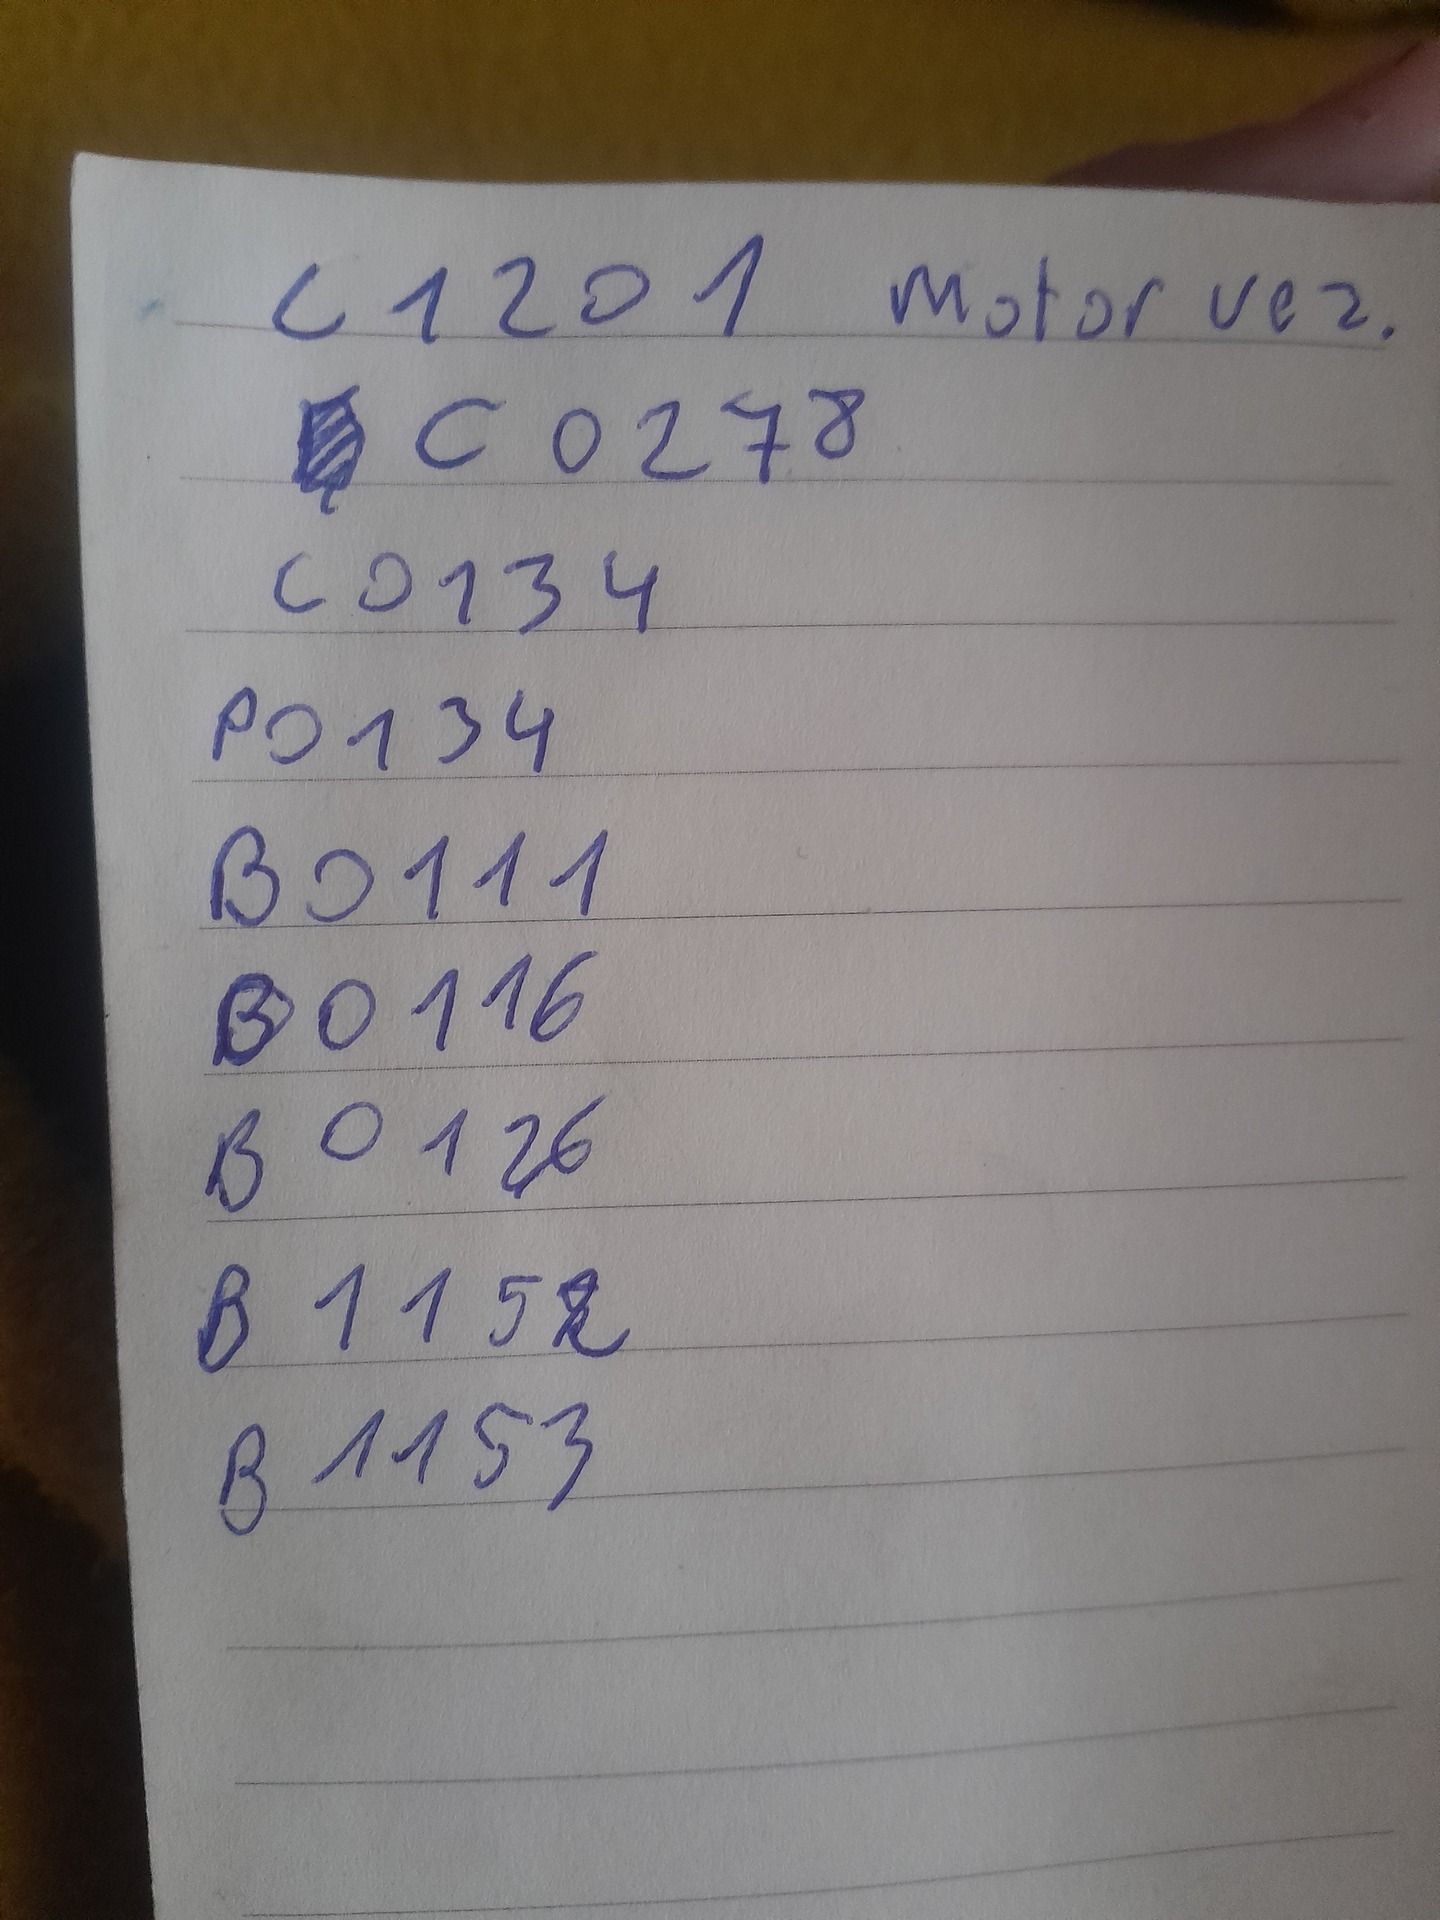 C1201 Motor vez.
C0278
C0134
P0134
B0111
B0116
B0126
B1152
B1153